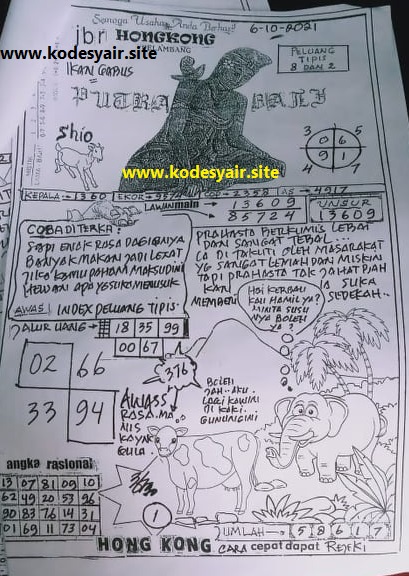 Semoga Usaha Anda Berhasil
6-10-2021
jbr HONGKONG
www.kodesyair.site
PELAMBANG
IKAN GABUS
PELUANG
TIPIS
8 DAN 2
PUTRA BALI
Shio
3 6
0 6
9 1
4 7
www.kodesyair.site
KEPALA → 1360 EKOR → 9574 2358 AS → 4917
LAWAN main 13609
85724
UNSUR
13609
COBA DITERKA:
SAPI ENAK RASA DAGINGNYA
BANYAK MAKAN JADI LEZAT
JIKA KAMU PAHAM MAKSUDINI
HEWANI APA YG SUKA MENUSUK
PRAHASTA BERKUMIS LEBAT
DAN SANGAT TEBAL...
IA DI TAKUTI OLEH MASARAKAT
YG SANGAT LEMAH DAN MISKIN
TADI PRAHASTA TAK JAHAT DIAH
KAN IA SUKA
MEMBERI SEDEKAH..
AWAS! INDEX PELUANG TIPIS
JALUR UANG → 18 35 99
00 67
HOI KERBAU
KAU HAMIL YA?
MINTA SUSU
NYA BOLEH
YA?
02 66
33 94
376
AWASS
RASA.MA
NIS
KAYAK
GULA.
BOLEH
JAH..AKU.
LAGI KAWIN
DI KAKI
GUNUNG INI
angka rasional
13 07 81 09 10
62 49 20 53 96
90 83 76 14 31
01 69 11 73 04
1
JUMLAH → 5 8 6 1 7
HONG KONG CARA cepat dapat REJEKI